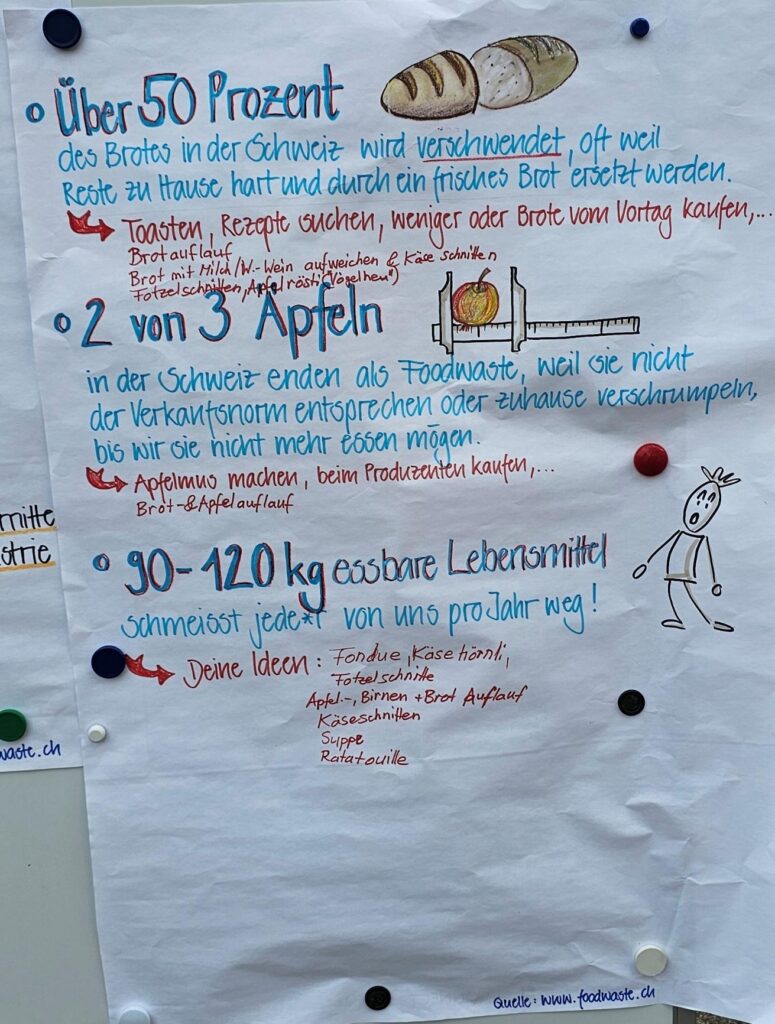 Über 50 Prozent
des Brotes in der Schweiz wird verschwendet, oft weil
Reste zu Hause hart und durch ein frisches Brot ersetzt werden.
Toasten, Rezepte suchen, weniger oder Brote vom Vortag kaufen,...
Brotauflauf
Brot mit Milch/W.-Wein aufweichen & Käse schnitten
Fotzelschnitten, Apfelrösti ("Vogelheu")
2 von 3 Äpfeln
in der Schweiz enden als Foodwaste, weil sie nicht
der Verkaufsnorm entsprechen oder zuhause verschrumpeln,
bis wir sie nicht mehr essen mögen.
Apfelmus machen, beim Produzenten kaufen,...
Brot-&Apfelauflauf
90-120 kg essbare Lebensmittel
schmeisst jede*r von uns pro Jahr weg!
Deine Ideen: Fondue, Käsehörnli,
Fotzelschnitte
Apfel-, Birnen + Brot Auflauf
Käseschnitten
Suppe
Ratatouille
Quelle: www.foodwaste.ch
mitte
strie
waste.ch